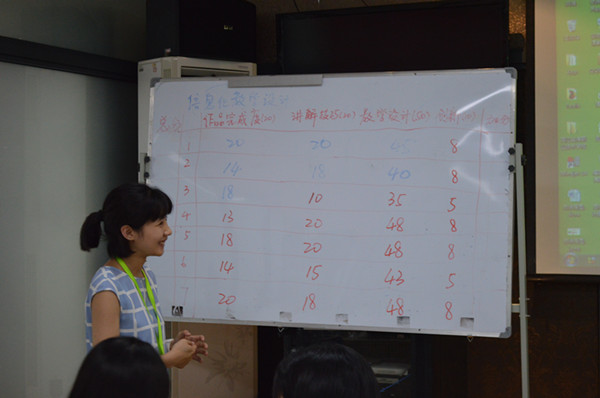 信息化教学设计
作品完成度(20) 讲解技巧(20) 教学设计(50) 创新(10)
1 20 20 8
2 14 18 40 8
3 18 10 35 5
4 13 20 48 8
5 18 20 48 8
6 14 15 43 5
7 20 18 48 8